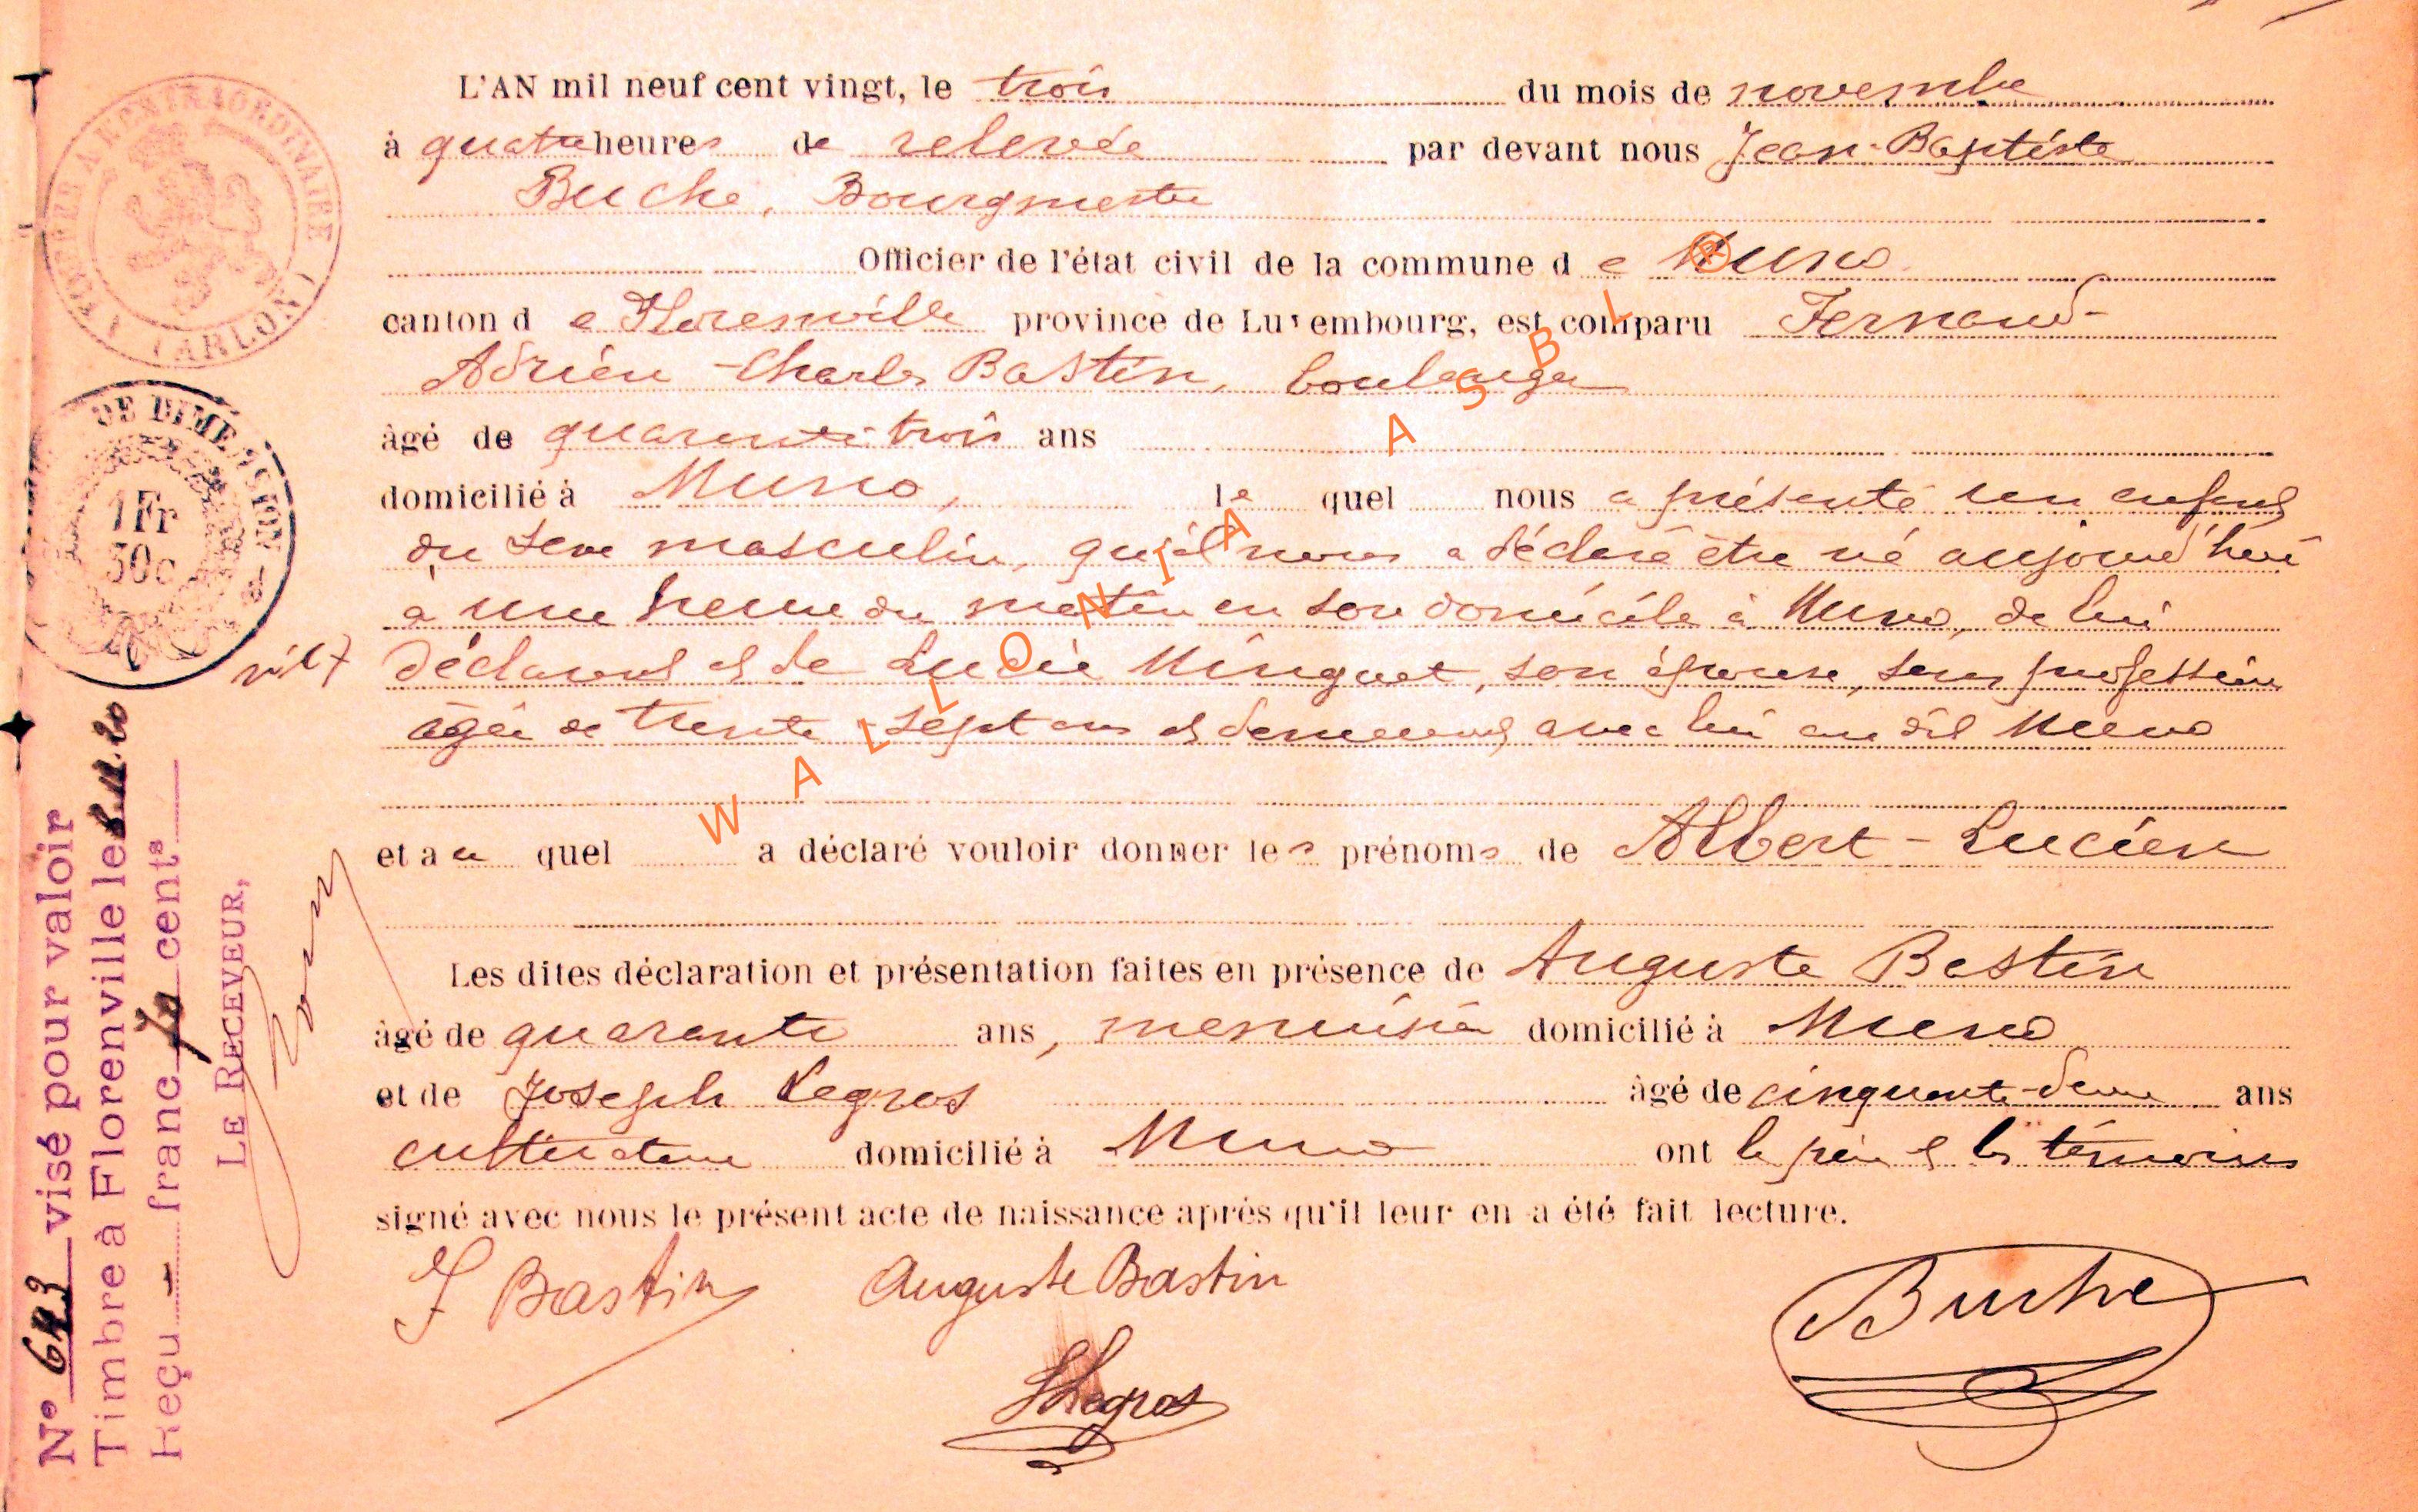 L'AN mil neuf cent vingt, le trois du mois de novembre
à quatre heures de relevée par devant nous Jean-Baptiste
Buche, Bourgmestre
Officier de l'état civil de la commune de Muno
canton de Florenville province de Luxembourg, est comparu Fernand-
Adrien-Charles Bastin, boulanger
âgé de quarante-trois ans
domicilié à Muno, lequel nous a présenté un enfant
du sexe masculin, qu'il nous a déclaré être né aujourd'hui
à une heure du matin en son domicile à Muno, de lui
déclarant et de Lucie Minguet, son épouse, sans profession
âgée de trente-sept ans et demeurant avec lui au dit Muno
et auquel a déclaré vouloir donner les prénoms de Albert-Lucien
Les dites déclaration et présentation faites en présence de Auguste Bastin
âgé de quarante ans, menuisier domicilié à Muno
et de Joseph Legros âgé de cinquante-deux ans
cultivateur domicilié à Muno ont le père et les témoins
signé avec nous le présent acte de naissance après qu'il leur en a été fait lecture.
F Bastin Auguste Bastin Buche
J Legros
TIMBRE EXTRAORDINAIRE
(ARLON)
DE DIMENSION
1 Fr
50c
N° 643 visé pour valoir
Timbre à Florenville le 8.11.20
Reçu - franc 70 cents
LE RECEVEUR,
WALLONIA ASBL ®